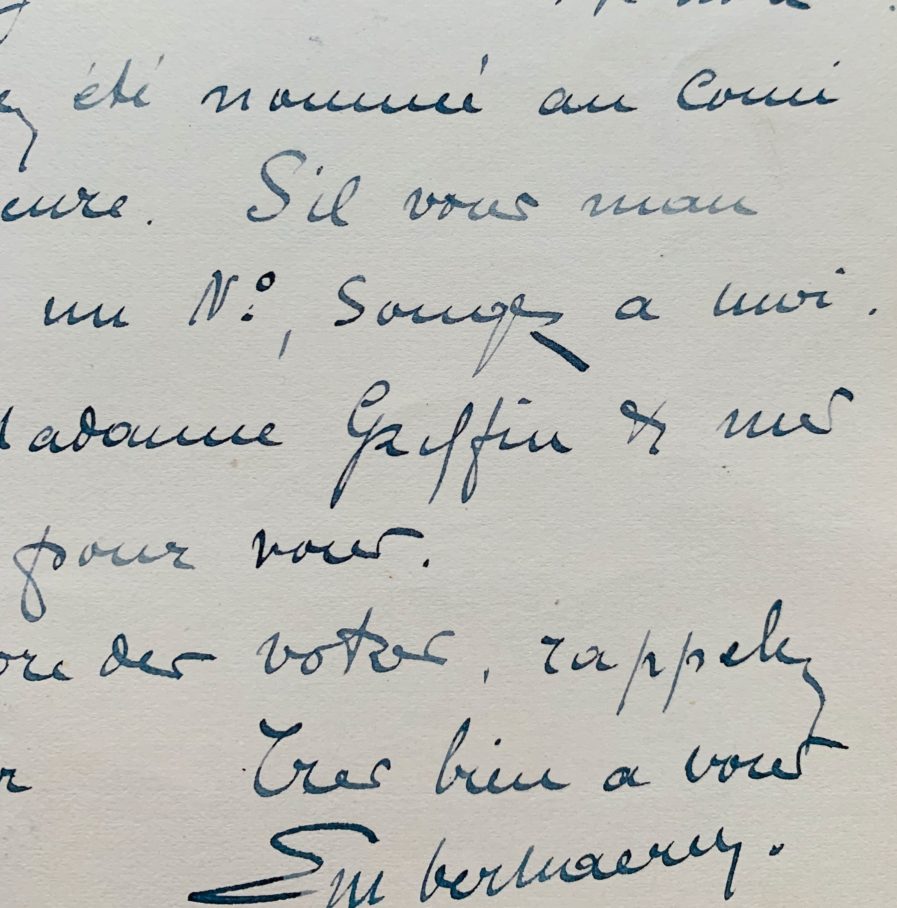 été nommé au Comi
eure. S'il vous man
un N°, Songez a moi.
Madame Griffin & mes
pour vous.
ore des votres, rappelez
Tres bien a vous
Em Verhaeren.